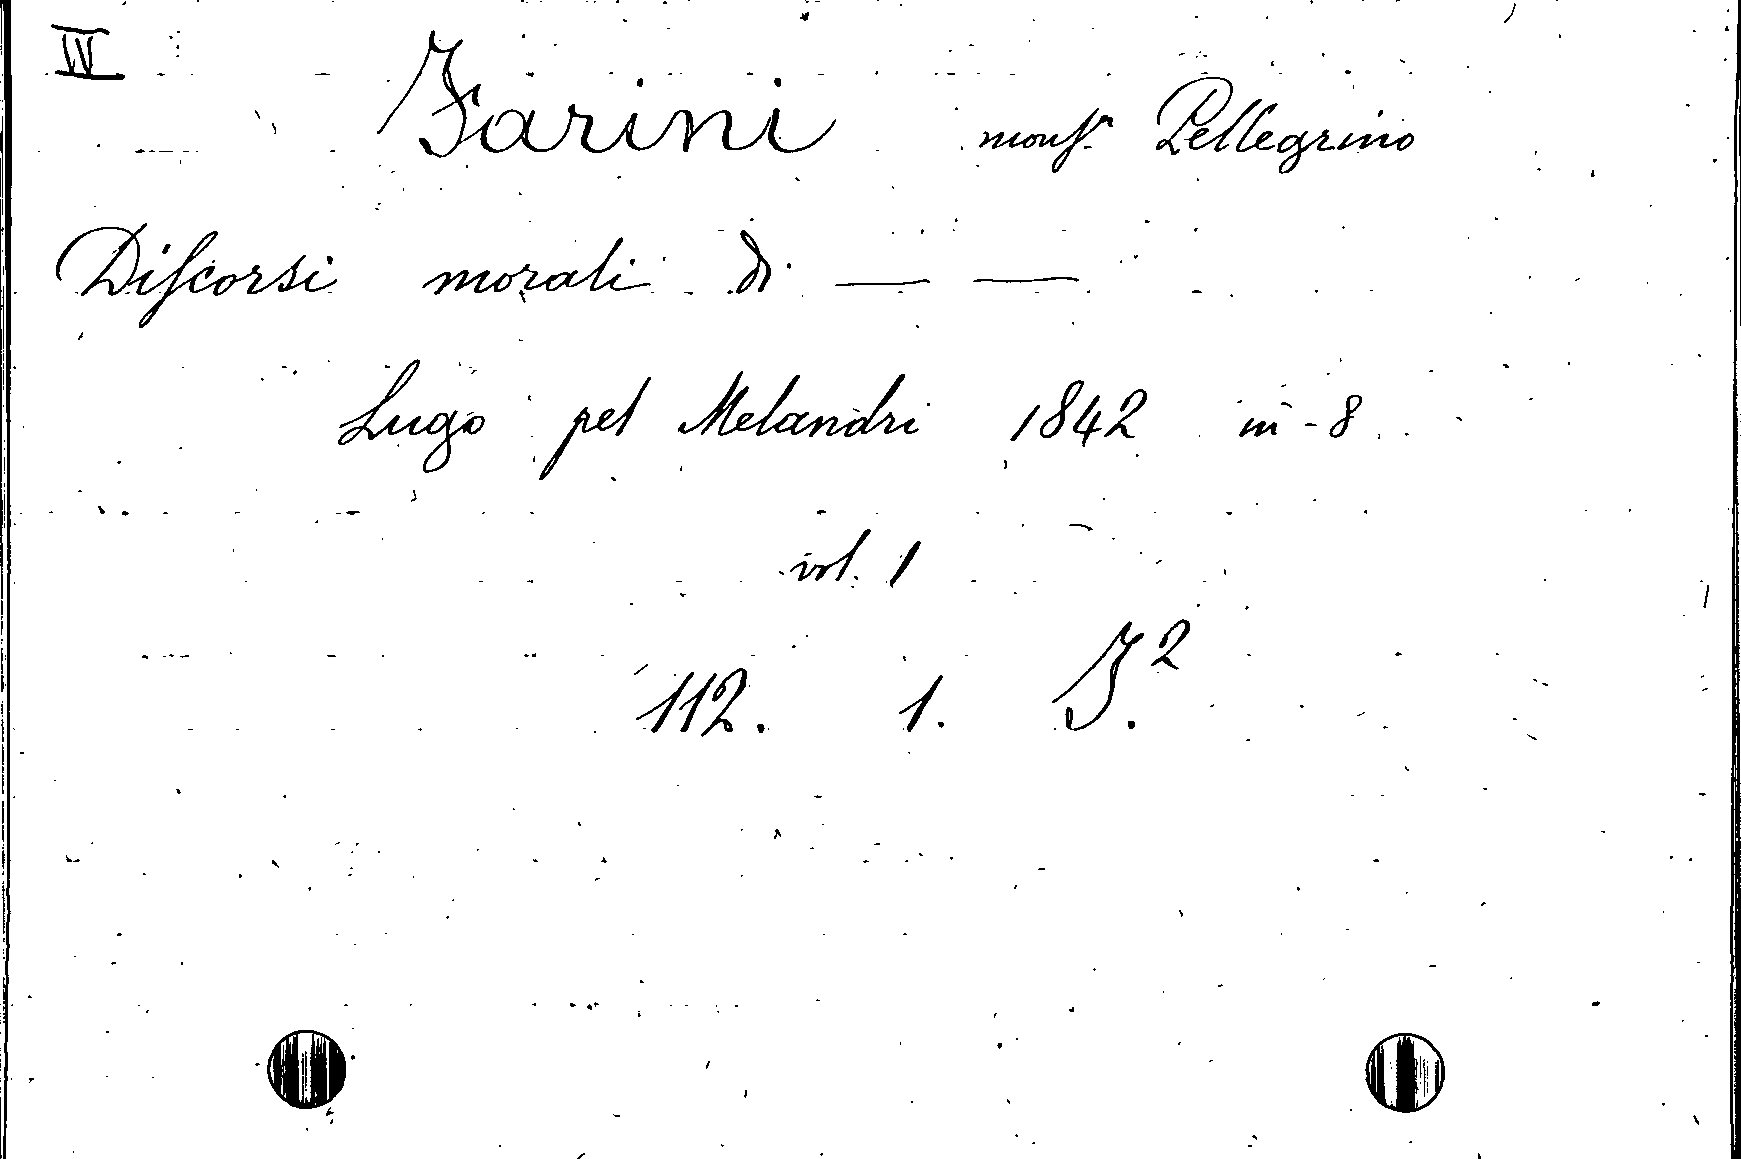 IV
Farini monsr Pellegrino
Discorsi morali di — —
Lugo pel Melandri 1842 in-8
vol. 1
112. 1. I.2